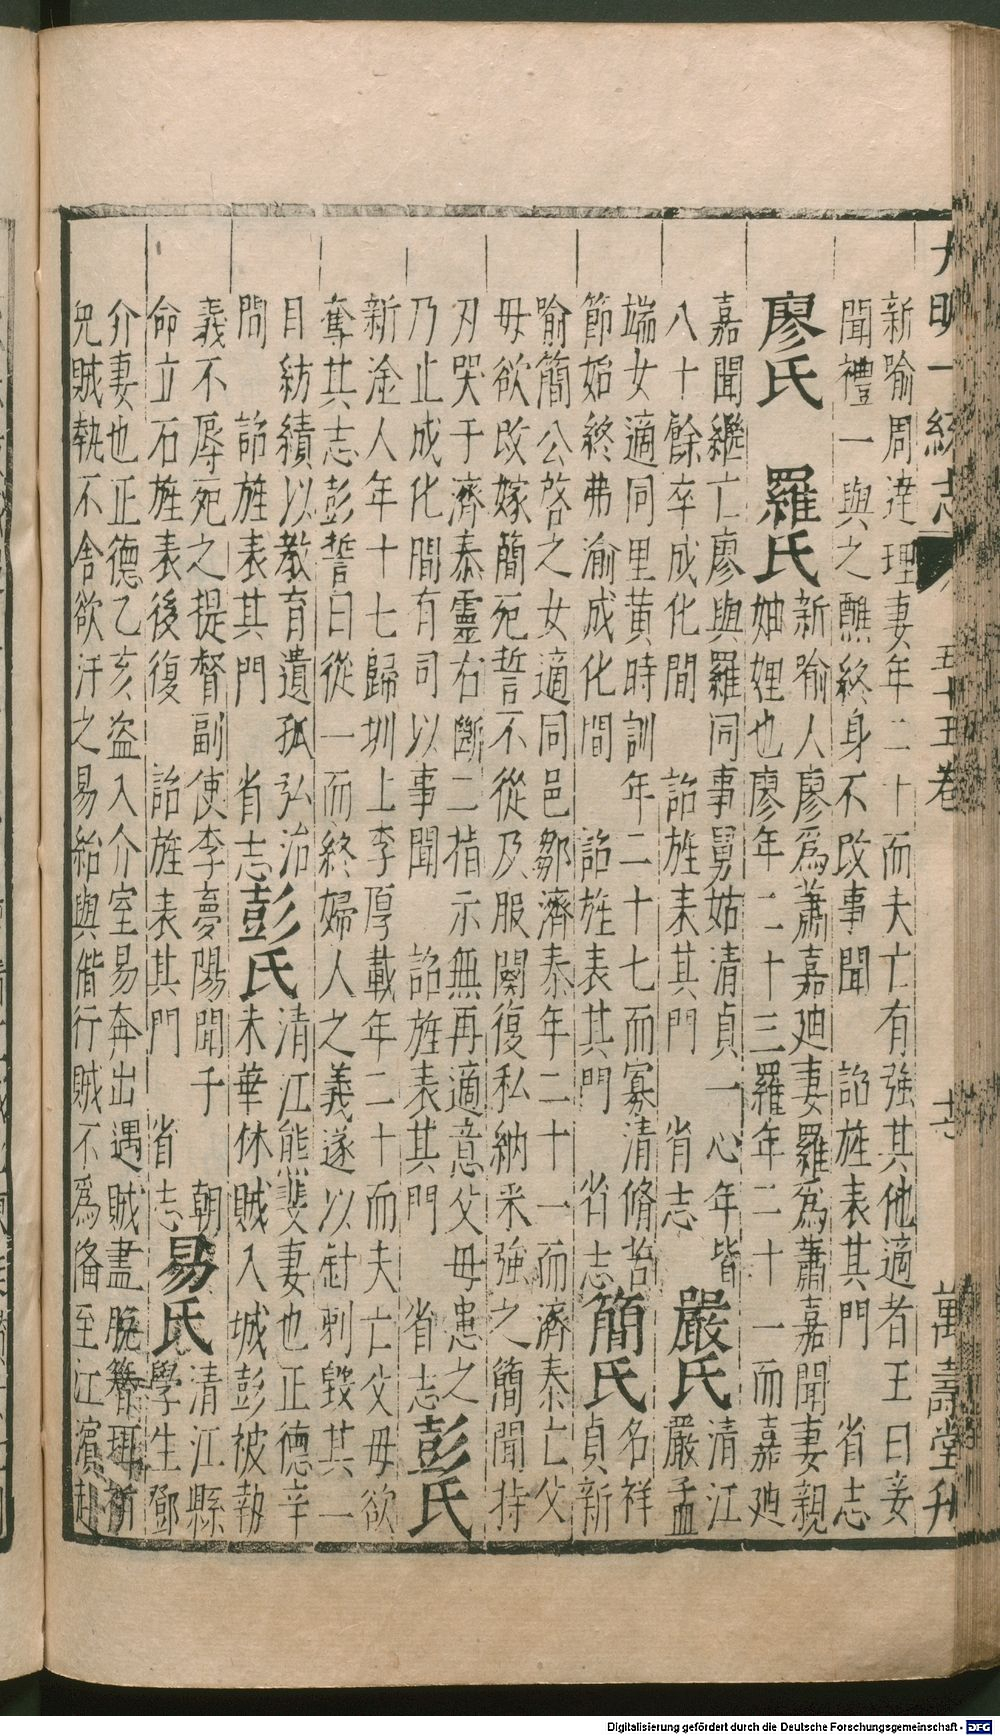 大明一統志 五十五卷 萬壽堂刊
新喻周達理妻年二十而夫亡有強其他適者王曰妾
聞禮一與之醮終身不改事聞 詔旌表其門 省志
廖氏 羅氏
新喻人廖爲蕭嘉廸妻羅爲蕭嘉聞妻親
妯娌也廖年二十三羅年二十一而嘉廸
嘉聞繼亡廖與羅同事舅姑清貞一心年皆
八十餘卒成化間 詔旌表其門 省志
嚴氏
清江
嚴孟
端女適同里黃時訓年二十七而寡清脩苦
節始終弗渝成化間 詔旌表其門 省志
簡氏
名祥
貞新
喻簡公啓之女適同邑鄒濟泰年二十一而濟泰亡父
母欲改嫁簡死誓不從及服闋復私納采強之簡聞持
刃哭于濟泰靈右斷二指示無再適意父母患之
乃止成化間有司以事聞 詔旌表其門 省志
彭氏
新淦人年十七歸圳上李厚載年二十而夫亡父母欲
奪其志彭誓曰從一而終婦人之義遂以針刺毀其一
目紡績以教育遺孤弘治
間 詔旌表其門 省志
彭氏
清江熊斐妻也正德辛
未華林賊入城彭被執
義不辱死之提督副使李夢陽聞于 朝
命立石旌表後復 詔旌表其門 省志
易氏
清江縣
學生鄧
介妻也正德乙亥盜入介室易奔出遇賊盡脫簪珥祈
免賊執不舍欲汙之易紿與偕行賊不爲備至江濱赴